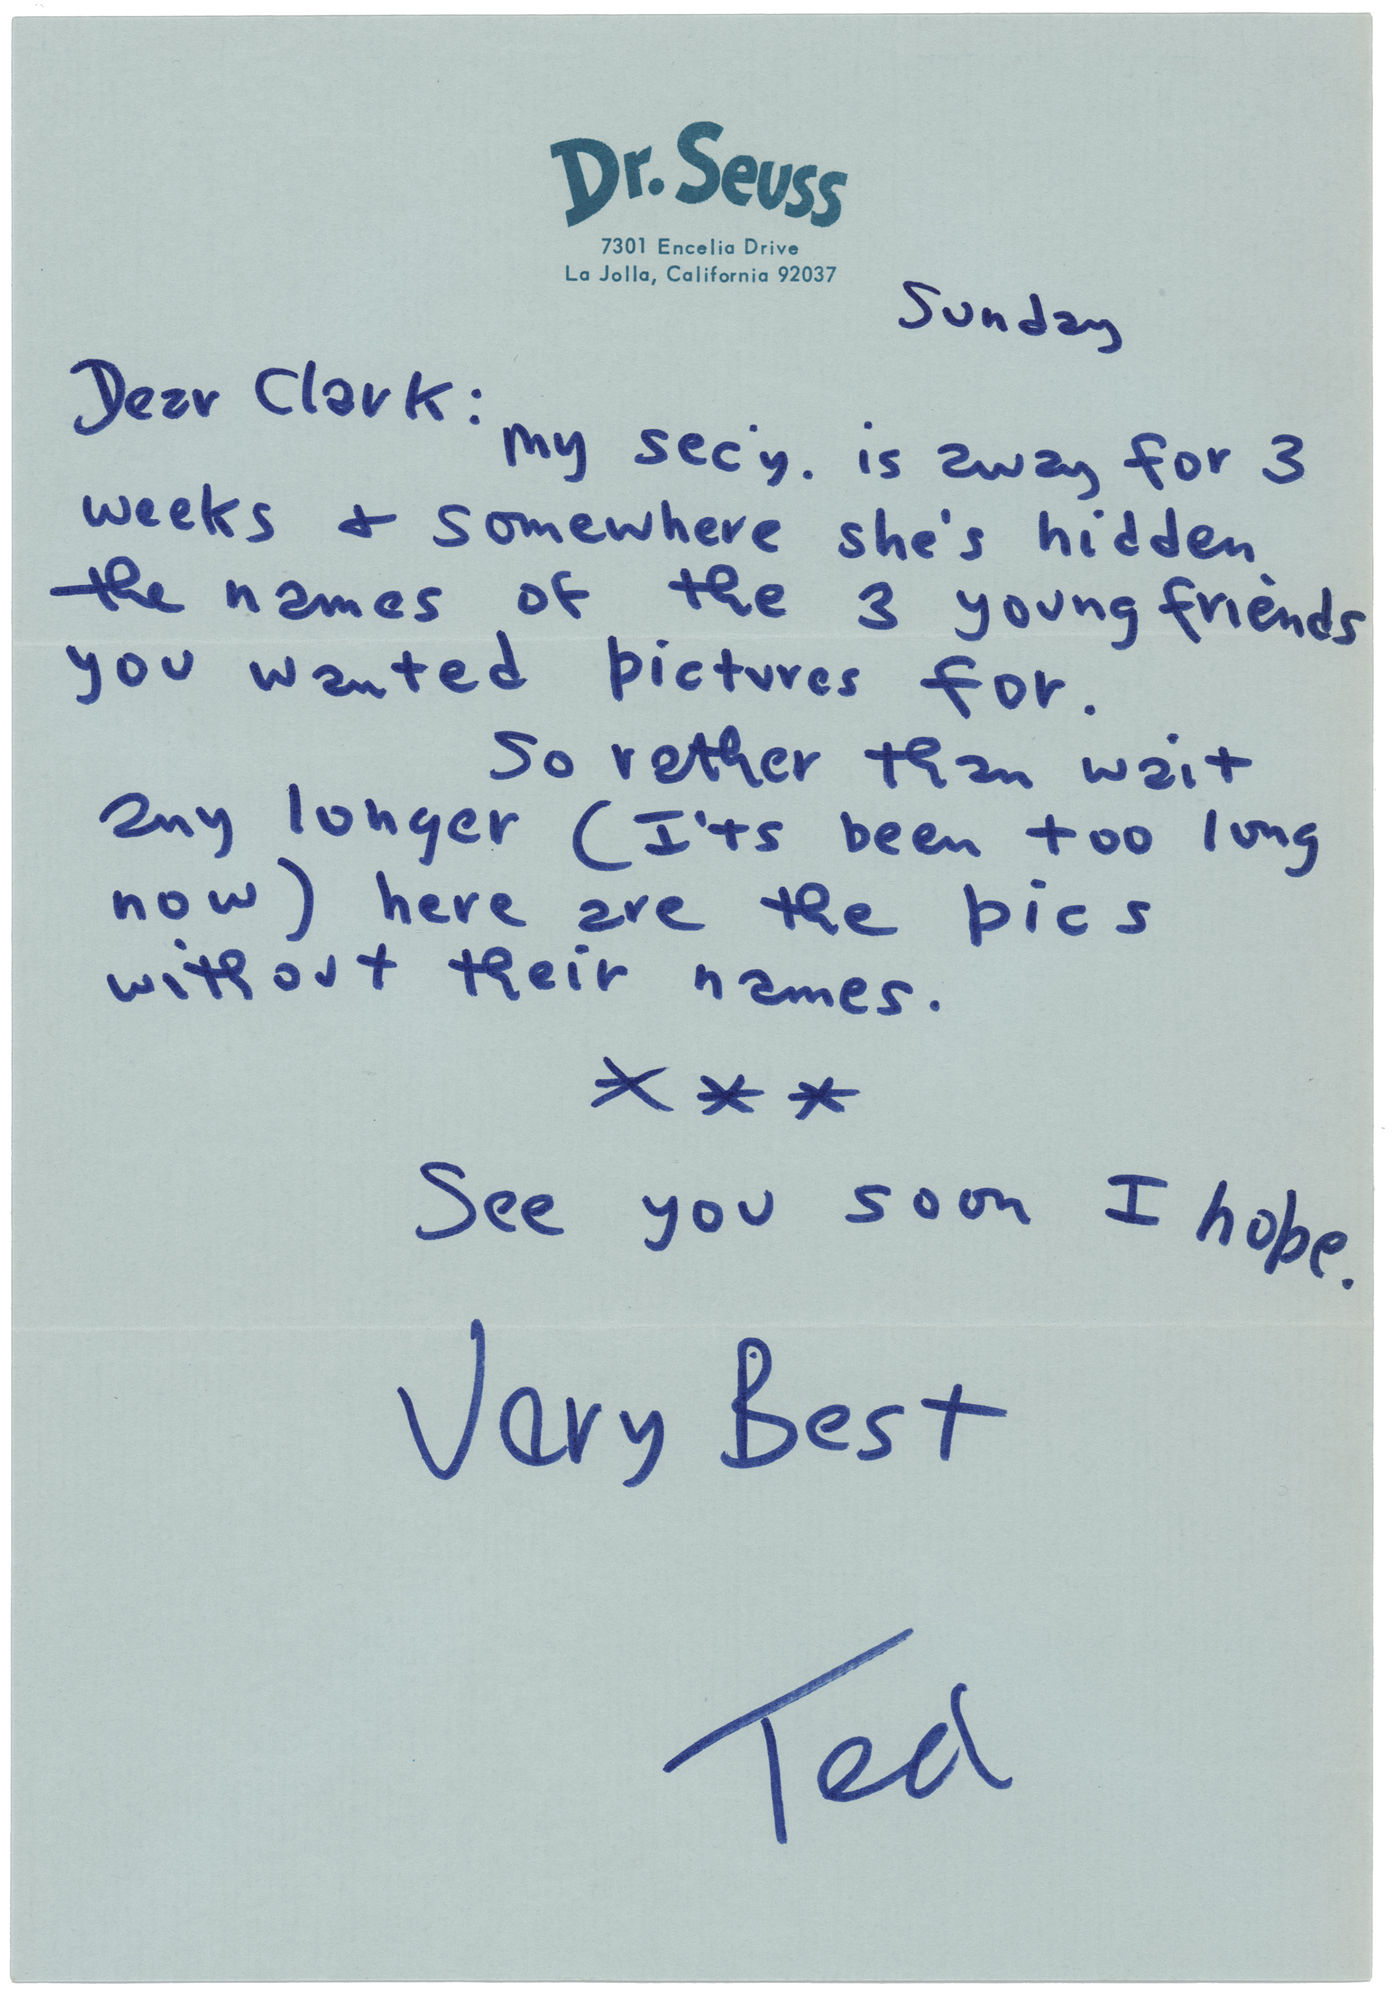 Dr. Seuss
7301 Encelia Drive
La Jolla, California 92037
Sunday
Dear Clark:
My sec'y. is away for 3
weeks & somewhere she's hidden
the names of the 3 young friends
you wanted pictures for.
So rether than wait
any longer (I'ts been too long
now) here are the pics
without their names.
* * *
See you soon I hope.
Very Best
Ted